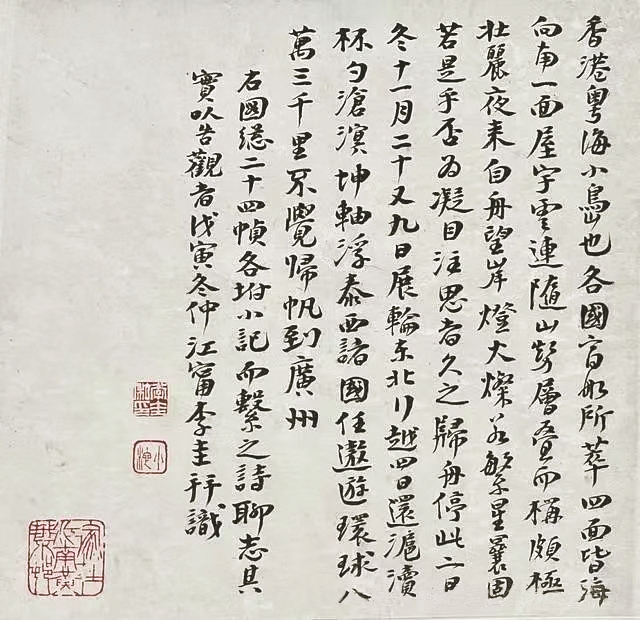 香港粵海小島也各國官船所萃四面皆海
向南一面屋宇雲連隨山勢層疊而構頗極
壯麗夜來自舟望岸燈火燦若繁星曩固
若是乎否為凝目注思者久之歸舟停此二日
冬十一月二十又九日展輪東北行越四日還滬瀆
杯勺滄溟坤軸浮泰西諸國任遨遊環球八
萬三千里不覺歸帆到廣州
右圖總二十四幀各坿小記而繫之詩聊志其
實以告觀者戊寅冬仲江甯李圭拜識
李圭
小池